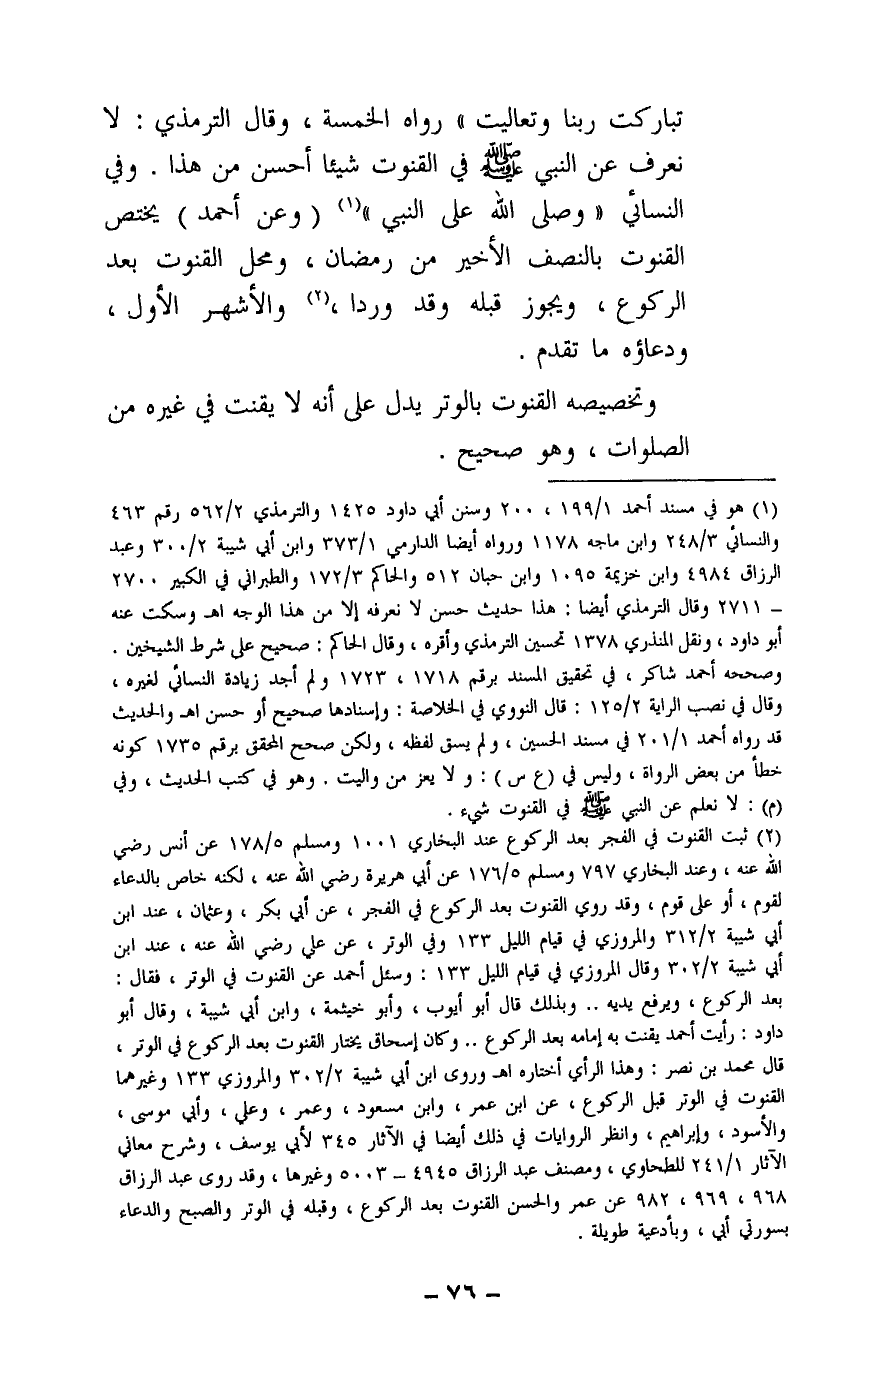 تباركت ربنا وتعاليت » رواه الخمسة ، وقال الترمذي : لا
نعرف عن النبي ﷺ في القنوت شيئا أحسن من هذا . وفي
النسائي « وصلى الله على النبي »(١) ( وعن أحمد ) يختص
القنوت بالنصف الأخير من رمضان ، ومحل القنوت بعد
الركوع ، ويجوز قبله وقد وردا ،(٢) والأشهر الأول ،
ودعاؤه ما تقدم .
وتخصيصه القنوت بالوتر يدل على أنه لا يقنت في غيره من
الصلوات ، وهو صحيح .
(١) هو في مسند أحمد ١٩٩/١ ، ٢٠٠ وسنن أبي داود ١٤٢٥ والترمذي ٥٦٢/٢ رقم ٤٦٣
والنسائي ٢٤٨/٣ وابن ماجه ١١٧٨ ورواه أيضا الدارمي ٣٧٣/١ وابن أبي شيبة ٣٠٠/٢ وعبد
الرزاق ٤٩٨٤ وابن خزيمة ١٠٩٥ وابن حبان ٥١٢ والحاكم ١٧٢/٣ والطبراني في الكبير ٢٧٠٠
ــ ٢٧١١ وقال الترمذي أيضا : هذا حديث حسن لا نعرفه إلا من هذا الوجه اهـ وسكت عنه
أبو داود ، ونقل المنذري ١٣٧٨ تحسين الترمذي وأقره ، وقال الحاكم : صحيح على شرط الشيخين .
وصححه أحمد شاكر ، في تحقيق المسند برقم ١٧١٨ ، ١٧٢٣ ولم أجد زيادة النسائي لغيره ،
وقال في نصب الراية ١٢٥/٢ : قال النووي في الخلاصة : وإسنادها صحيح أو حسن اهـ والحديث
قد رواه أحمد ٢٠١/١ في مسند الحسين ، ولم يسق لفظه ، ولكن صحح المحقق برقم ١٧٣٥ كونه
خطأ من بعض الرواة ، وليس في (ع س) : و لا يعز من واليت . وهو في كتب الحديث ، وفي
(م) : لا نعلم عن النبي ﷺ في القنوت شيء .
(٢) ثبت القنوت في الفجر بعد الركوع عند البخاري ١٠٠١ ومسلم ١٧٨/٥ عن أنس رضي
الله عنه ، وعند البخاري ٧٩٧ ومسلم ١٧٦/٥ عن أبي هريرة رضي الله عنه ، لكنه خاص بالدعاء
لقوم ، أو على قوم ، وقد روي القنوت بعد الركوع في الفجر ، عن أبي بكر ، وعثمان ، عند ابن
أبي شيبة ٣١٢/٢ والمروزي في قيام الليل ١٣٣ وفي الوتر ، عن علي رضي الله عنه ، عند ابن
أبي شيبة ٣٠٢/٢ وقال المروزي في قيام الليل ١٣٣ : وسئل أحمد عن القنوت في الوتر ، فقال :
بعد الركوع ، ويرفع يديه .. وبذلك قال أبو أيوب ، وأبو خيثمة ، وابن أبي شيبة ، وقال أبو
داود : رأيت أحمد يقنت به إمامه بعد الركوع .. وكان إسحاق يختار القنوت بعد الركوع في الوتر ،
قال محمد بن نصر : وهذا الرأي أختاره اهـ وروى ابن أبي شيبة ٣٠٢/٢ والمروزي ١٣٣ وغيرهما
القنوت في الوتر قبل الركوع ، عن ابن عمر ، وابن مسعود ، وعمر ، وعلي ، وأبي موسى ،
والأسود ، وإبراهيم ، وانظر الروايات في ذلك أيضا في الآثار ٣٤٥ لأبي يوسف ، وشرح معاني
الآثار ٢٤١/١ للطحاوي ، ومصنف عبد الرزاق ٤٩٤٥ ــ ٥٠٠٣ وغيرها ، وقد روى عبد الرزاق
٩٦٨ ، ٩٦٩ ، ٩٨٢ عن عمر والحسن القنوت بعد الركوع ، وقبله في الوتر والصبح والدعاء
بسورتي أبي ، وبأدعية طويلة .
ــ ٧٦ ــ